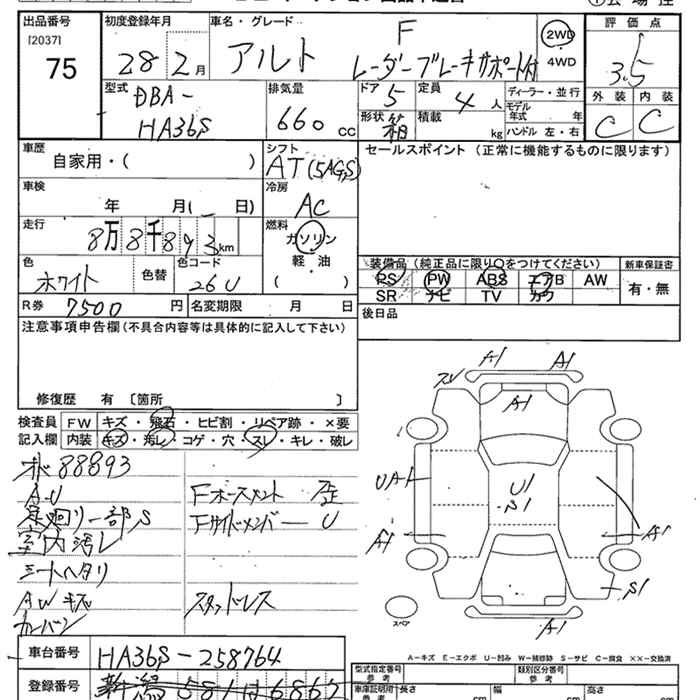 出品番号
[2037]
75
初度登録年月
28年2月
車名・グレード
アルト F
レーダーブレーキサポート付
2WD
4WD
評価点
3.5
外装 内装
C C
型式
DBA-
HA36S
排気量
660 cc
ドア 5
定員 4人
形状 箱
積載 kg
ディーラー・並行
モデル年式 年
ハンドル 左・右
車歴
自家用・( )
シフト
AT(5AGS)
セールスポイント (正常に機能するものに限ります)
車検
年 月( 日)
冷房
AC
走行
8万8千893km
燃料
ガソリン
軽・油
( )
色
ホワイト
色替
色コード
26U
装備品 (純正品に限り○をつけてください)
新車保証書
PS PW ABS エアB AW
SR ナビ TV カワ
有・無
R券 7500円
名変期限 月 日
後日品
注意事項申告欄(不具合内容等は具体的に記入して下さい)
修復歴 有 〔箇所 〕
検査員
記入欄
FW キズ・飛石・ヒビ割・リペア跡・×要
内装 キズ・汚レ・コゲ・穴・スレ・キレ・破レ
88893
A-U
足廻リ一部S
室内汚レ
シートヘタリ
AWキズ
カーバン
Fホースメント 歪
Fサイドメンバー U
スタッドレス
A1
A1
A1
UA1
U1
S1
A1
A1
S1
A1
スペア
A-キズ E-エクボ U-凹み W-補修跡 S-サビ C-腐食 ××-交換済
車台番号
HA36S-258764
登録番号
新潟581は6867
型式指定番号
参考
類別区分番号
参考
車庫証明用
参考
長さ cm
幅 cm
高さ cm